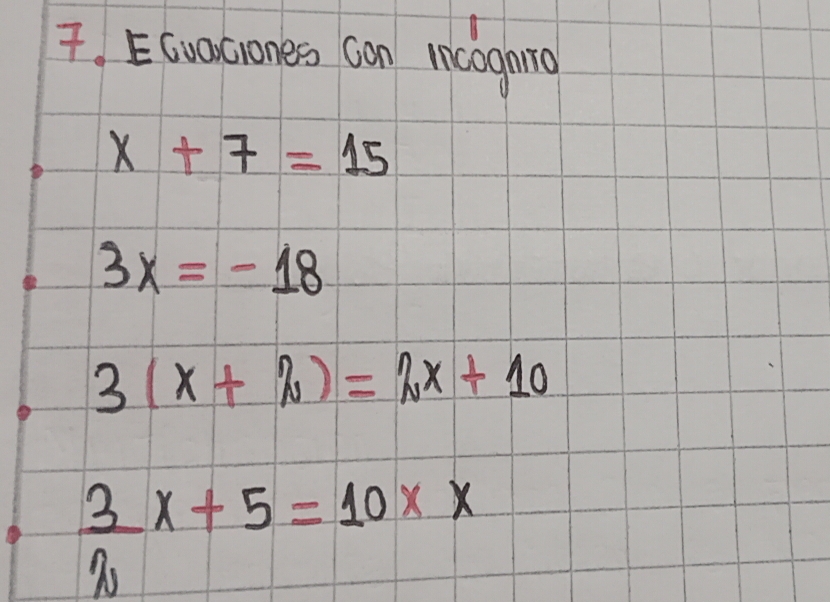 7. Ecuaciones con incógnita
x + 7 = 15
3x = - 18
3 (x + 2) = 2x + 10
3/2 x + 5 = 10 x x